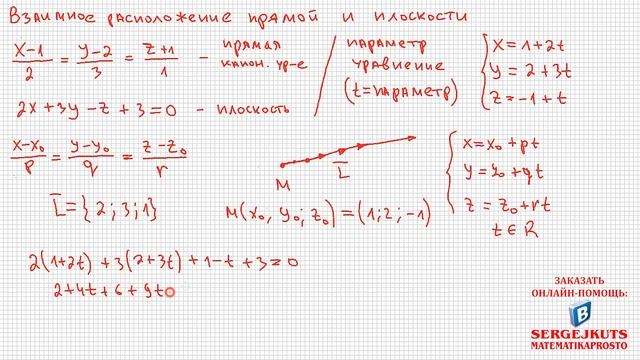 Взаимное расположение прямой и плоскости
(x-1)/2 = (y-2)/3 = (z+1)/1 - прямая канон. ур-е / параметр уравнение (t=параметр) { x=1+2t
y=2+3t
z=-1+t
2x+3y-z+3=0 - плоскость
(x-x₀)/p = (y-y₀)/q = (z-z₀)/r
M L̅
{ x=x₀+pt
y=y₀+qt
z=z₀+rt
t∈R
L̅={2;3;1}
M(x₀, y₀; z₀)=(1;2;-1)
2(1+2t)+3(2+3t)+1-t+3=0
2+4t+6+9t
ЗАКАЗАТЬ
ОНЛАЙН-ПОМОЩЬ:
B
SERGEJKUTS
MATEMATIKAPROSTO